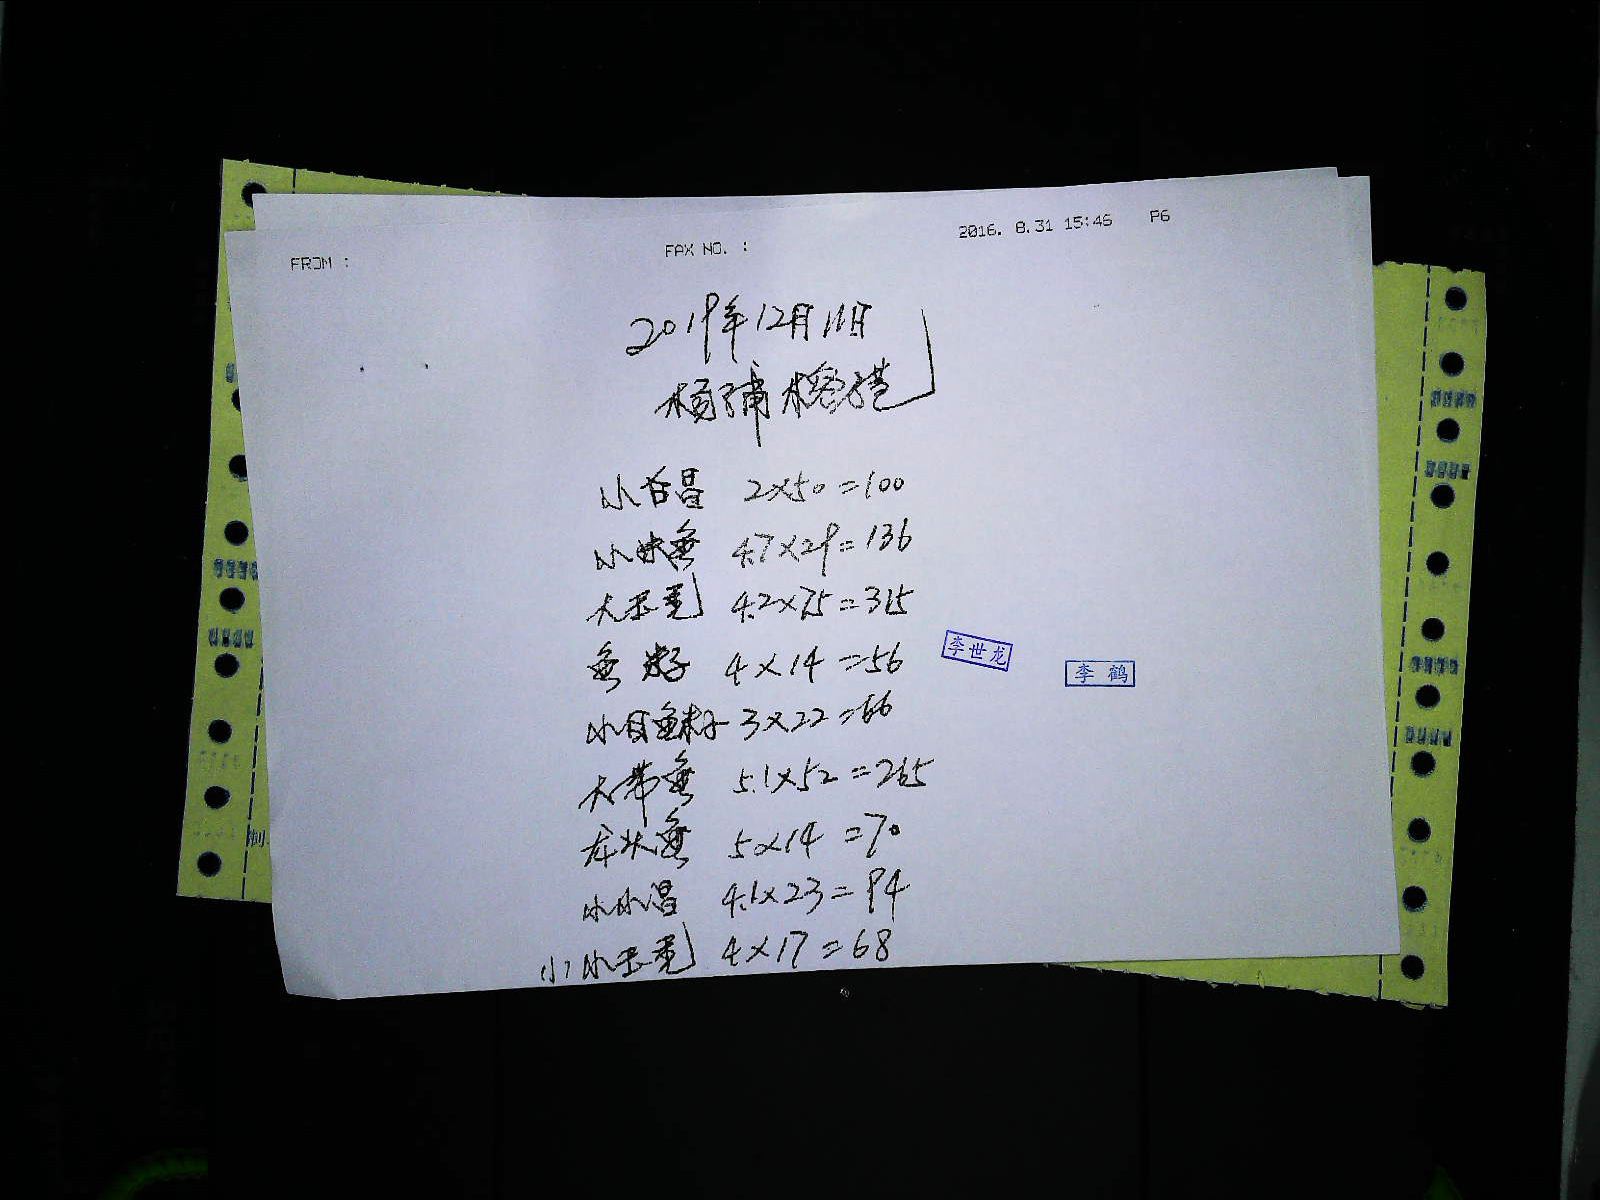 FROM :
FAX NO. :
2016. 8.31 15:46 P6
2019年12月11日
杨浦
小白昌 2×50=100
小妹鱼 4.7×29=136
大玉秃 4.2×75=315
鱼 籽 4×14=56
小目鱼籽 3×22=66
大带鱼 5.1×52=265
龙头鱼 5×14=70
小小昌 4.1×23=94
小小玉秃 4×17=68
李世龙
李鹤
制